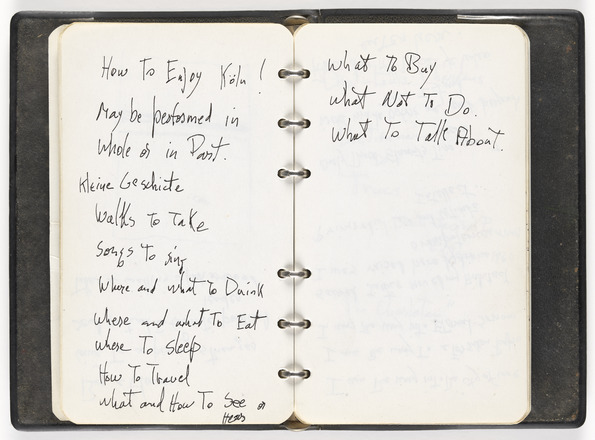 How To Enjoy Köln!
May be performed in
whole or in Part.
Kleine Geschicte
Walks To Take
Songs To sing
Where and what To Drink
where and what To Eat
where To Sleep
How To Travel
what and How To See or
Hear
what To Buy
what Not To Do.
what To Talk About.